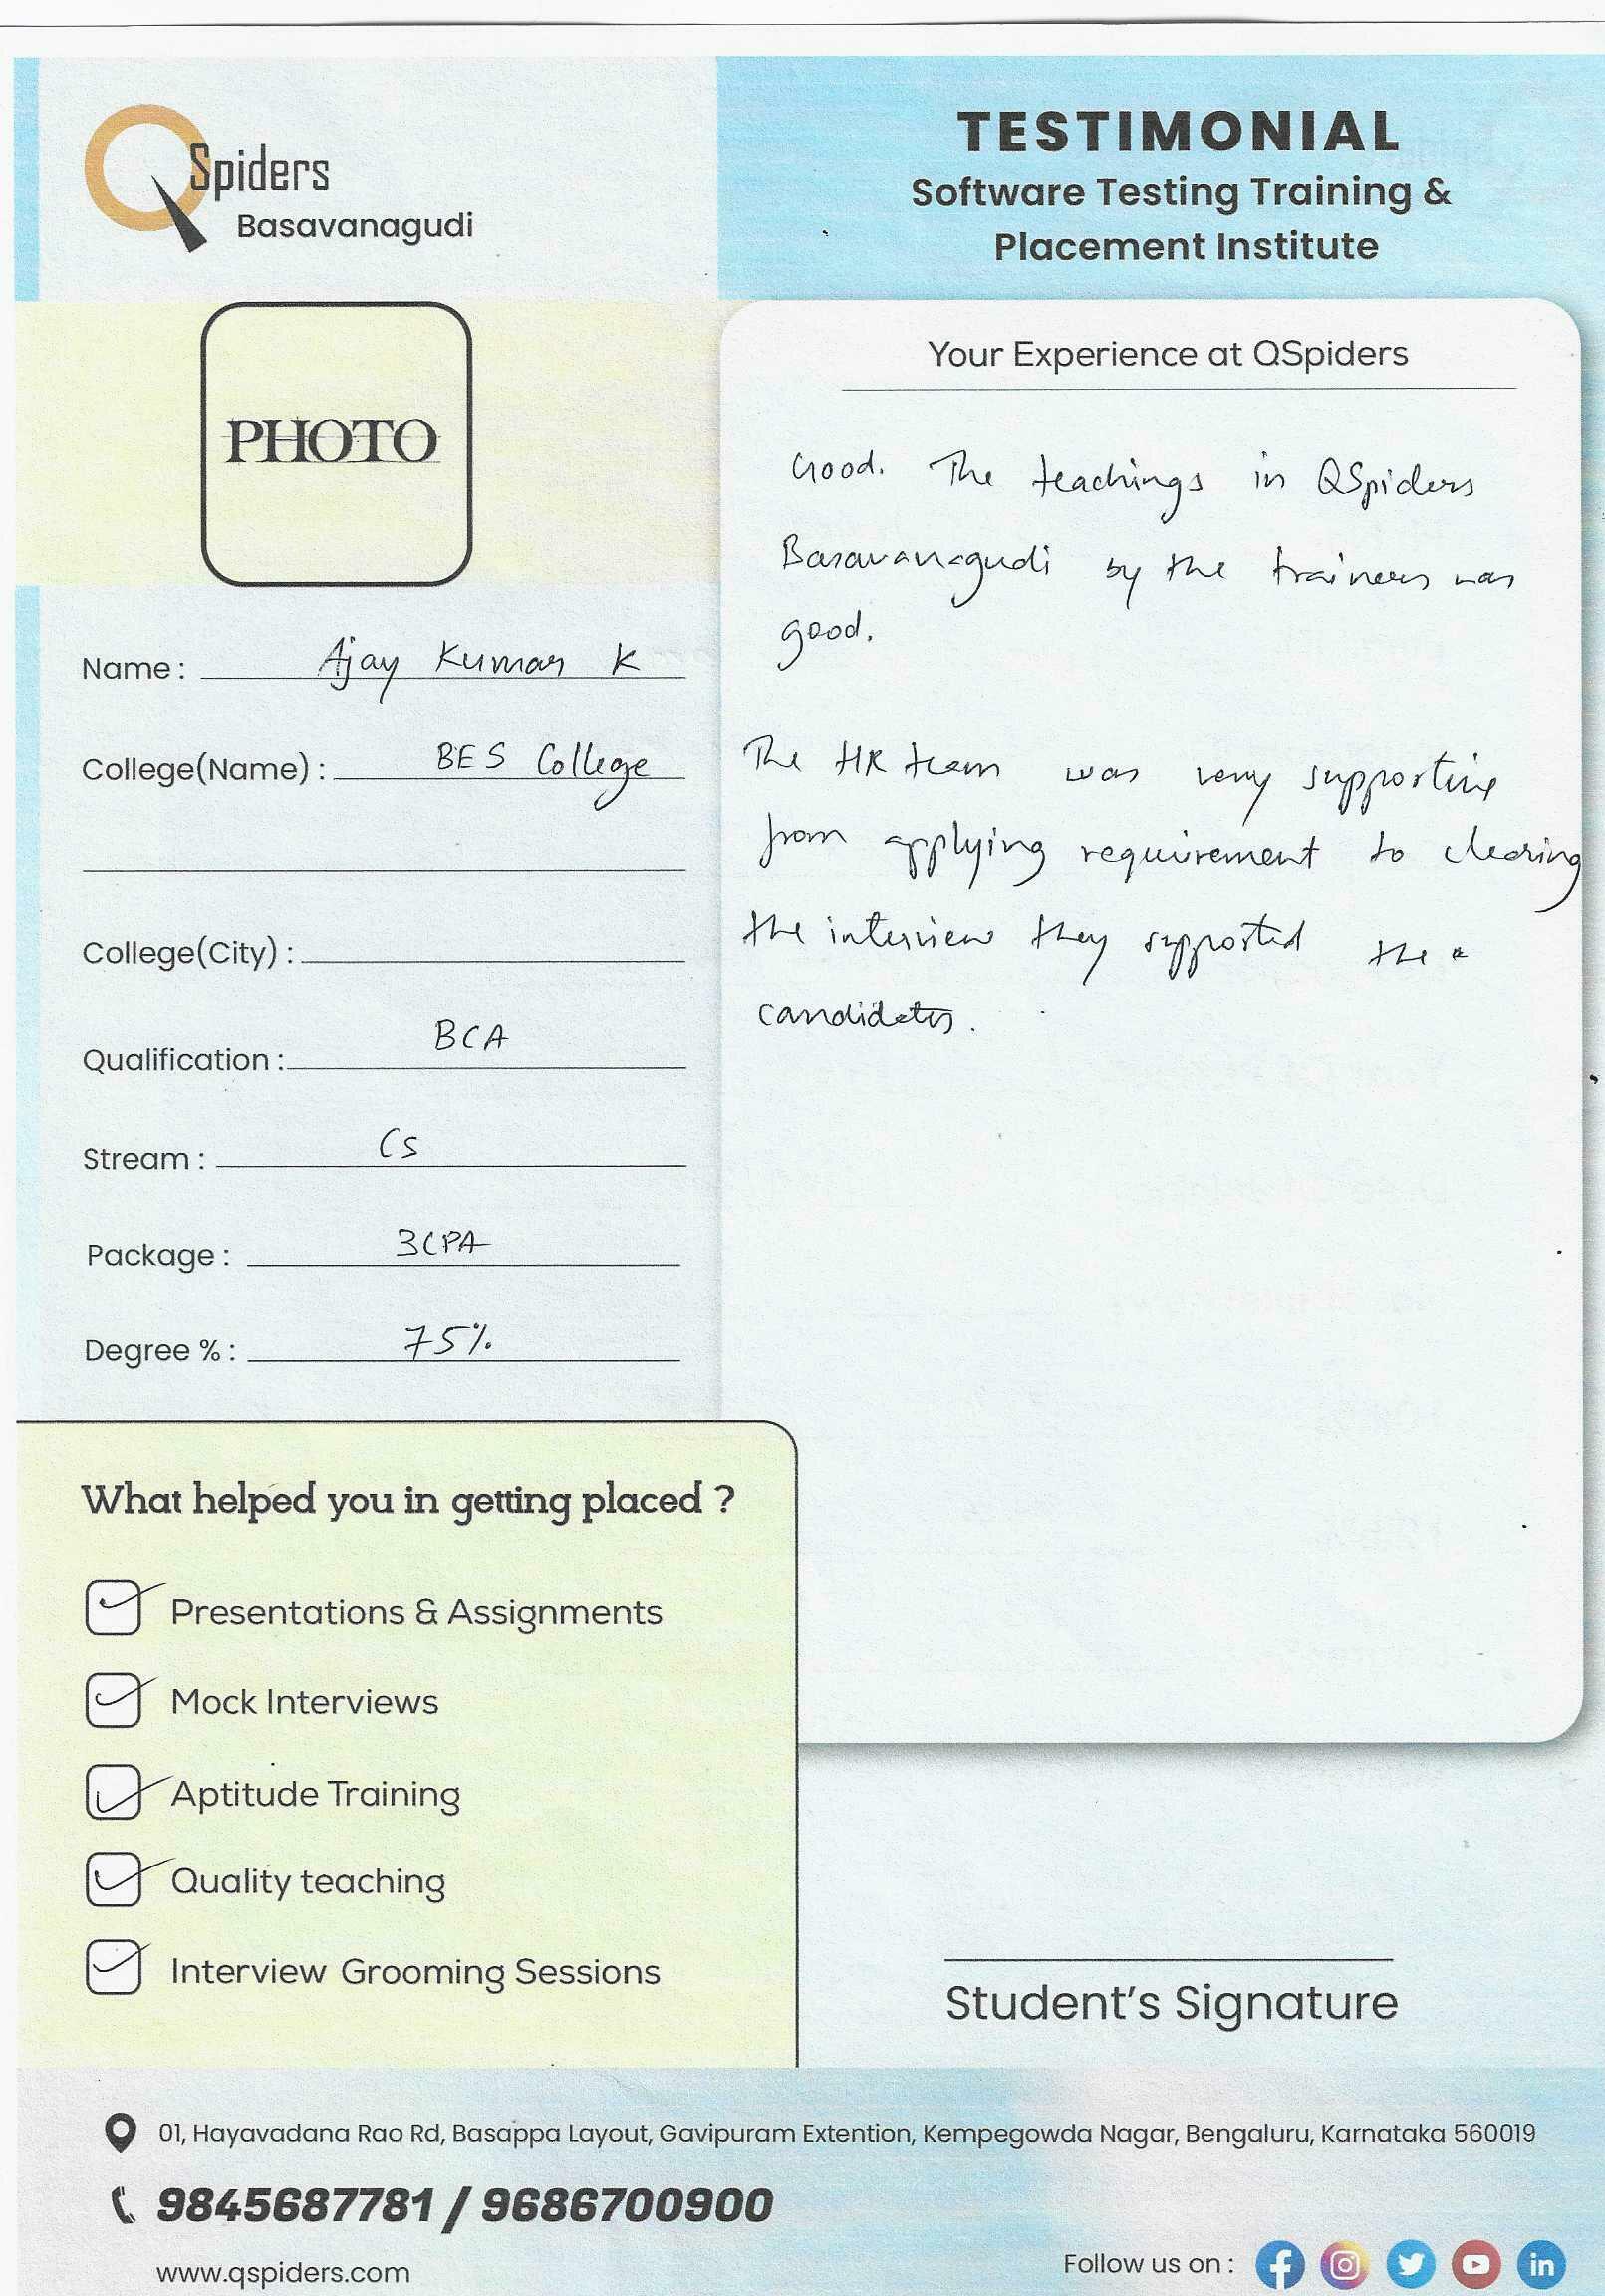 QSpiders
Basavanagudi
TESTIMONIAL
Software Testing Training &
Placement Institute
PHOTO
Name : Ajay Kumar K
College(Name) : BES College
College(City) :
Qualification : BCA
Stream : CS
Package : 3LPA
Degree % : 75%
Your Experience at QSpiders
Good. The teachings in QSpiders
Basavanagudi by the trainers was
good.
The HR team was very supportive
from applying requirement to clearing
the interview they supported the
candidates.
What helped you in getting placed ?
Presentations & Assignments
Mock Interviews
Aptitude Training
Quality teaching
Interview Grooming Sessions
Student's Signature
01, Hayavadana Rao Rd, Basappa Layout, Gavipuram Extention, Kempegowda Nagar, Bengaluru, Karnataka 560019
9845687781 / 9686700900
www.qspiders.com
Follow us on :